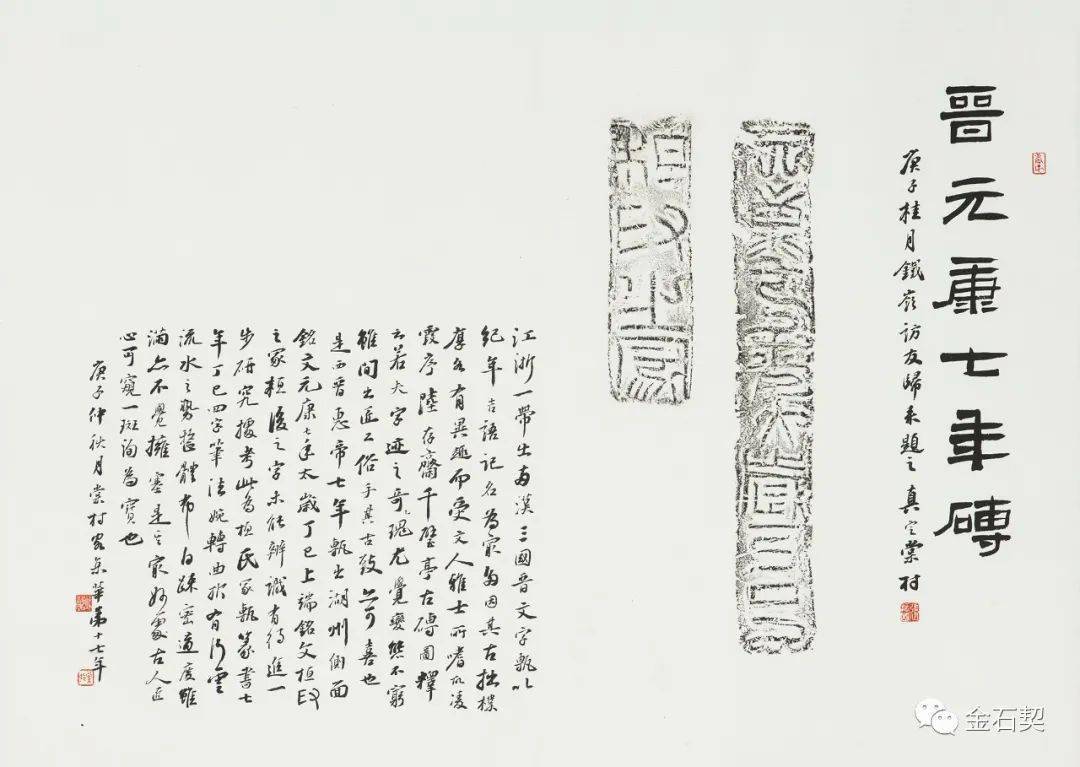 晉元康七年磚
庚子桂月鐵嶺訪友歸來題之真定棠村
江浙一帶出兩漢三國晉文字甎以
紀年吉語記名為最多因其古拙樸
厚各有異趣而受文人雅士所嗜凌
霞序陸存齋千甓亭古磚圖釋
云若夫字迹之奇瑰尤覺變態不窮
雖間出匠工俗手其古致亦可喜也
是西晉惠帝七年甎出湖州側面
銘文元康七年太歲丁巳上端銘文桓
之冢桓後之字未能辨識有待進一
步研究據考此為桓氏冢甎篆書七
年丁巳四字筆法婉轉曲折有行雲
流水之勢整體布白疎密適度雖
滿亦不覺擁塞是其最妙處古人匠
心可窺一斑洵為寶也
庚子仲秋月棠村客京華第十七年
金石契